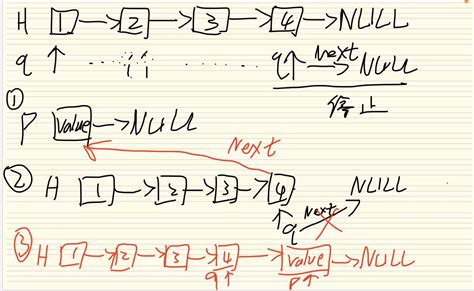 H 1 → 2 → 3 → 4 → NULL
q ↑ ... q↑ Next → NULL
停止
①
P value → NULL
Next
② H 1 → 2 → 3 → 4 NULL
↑ q Next
③ H 1 → 2 → 3 → 4 → value → NULL
q↑ P↑